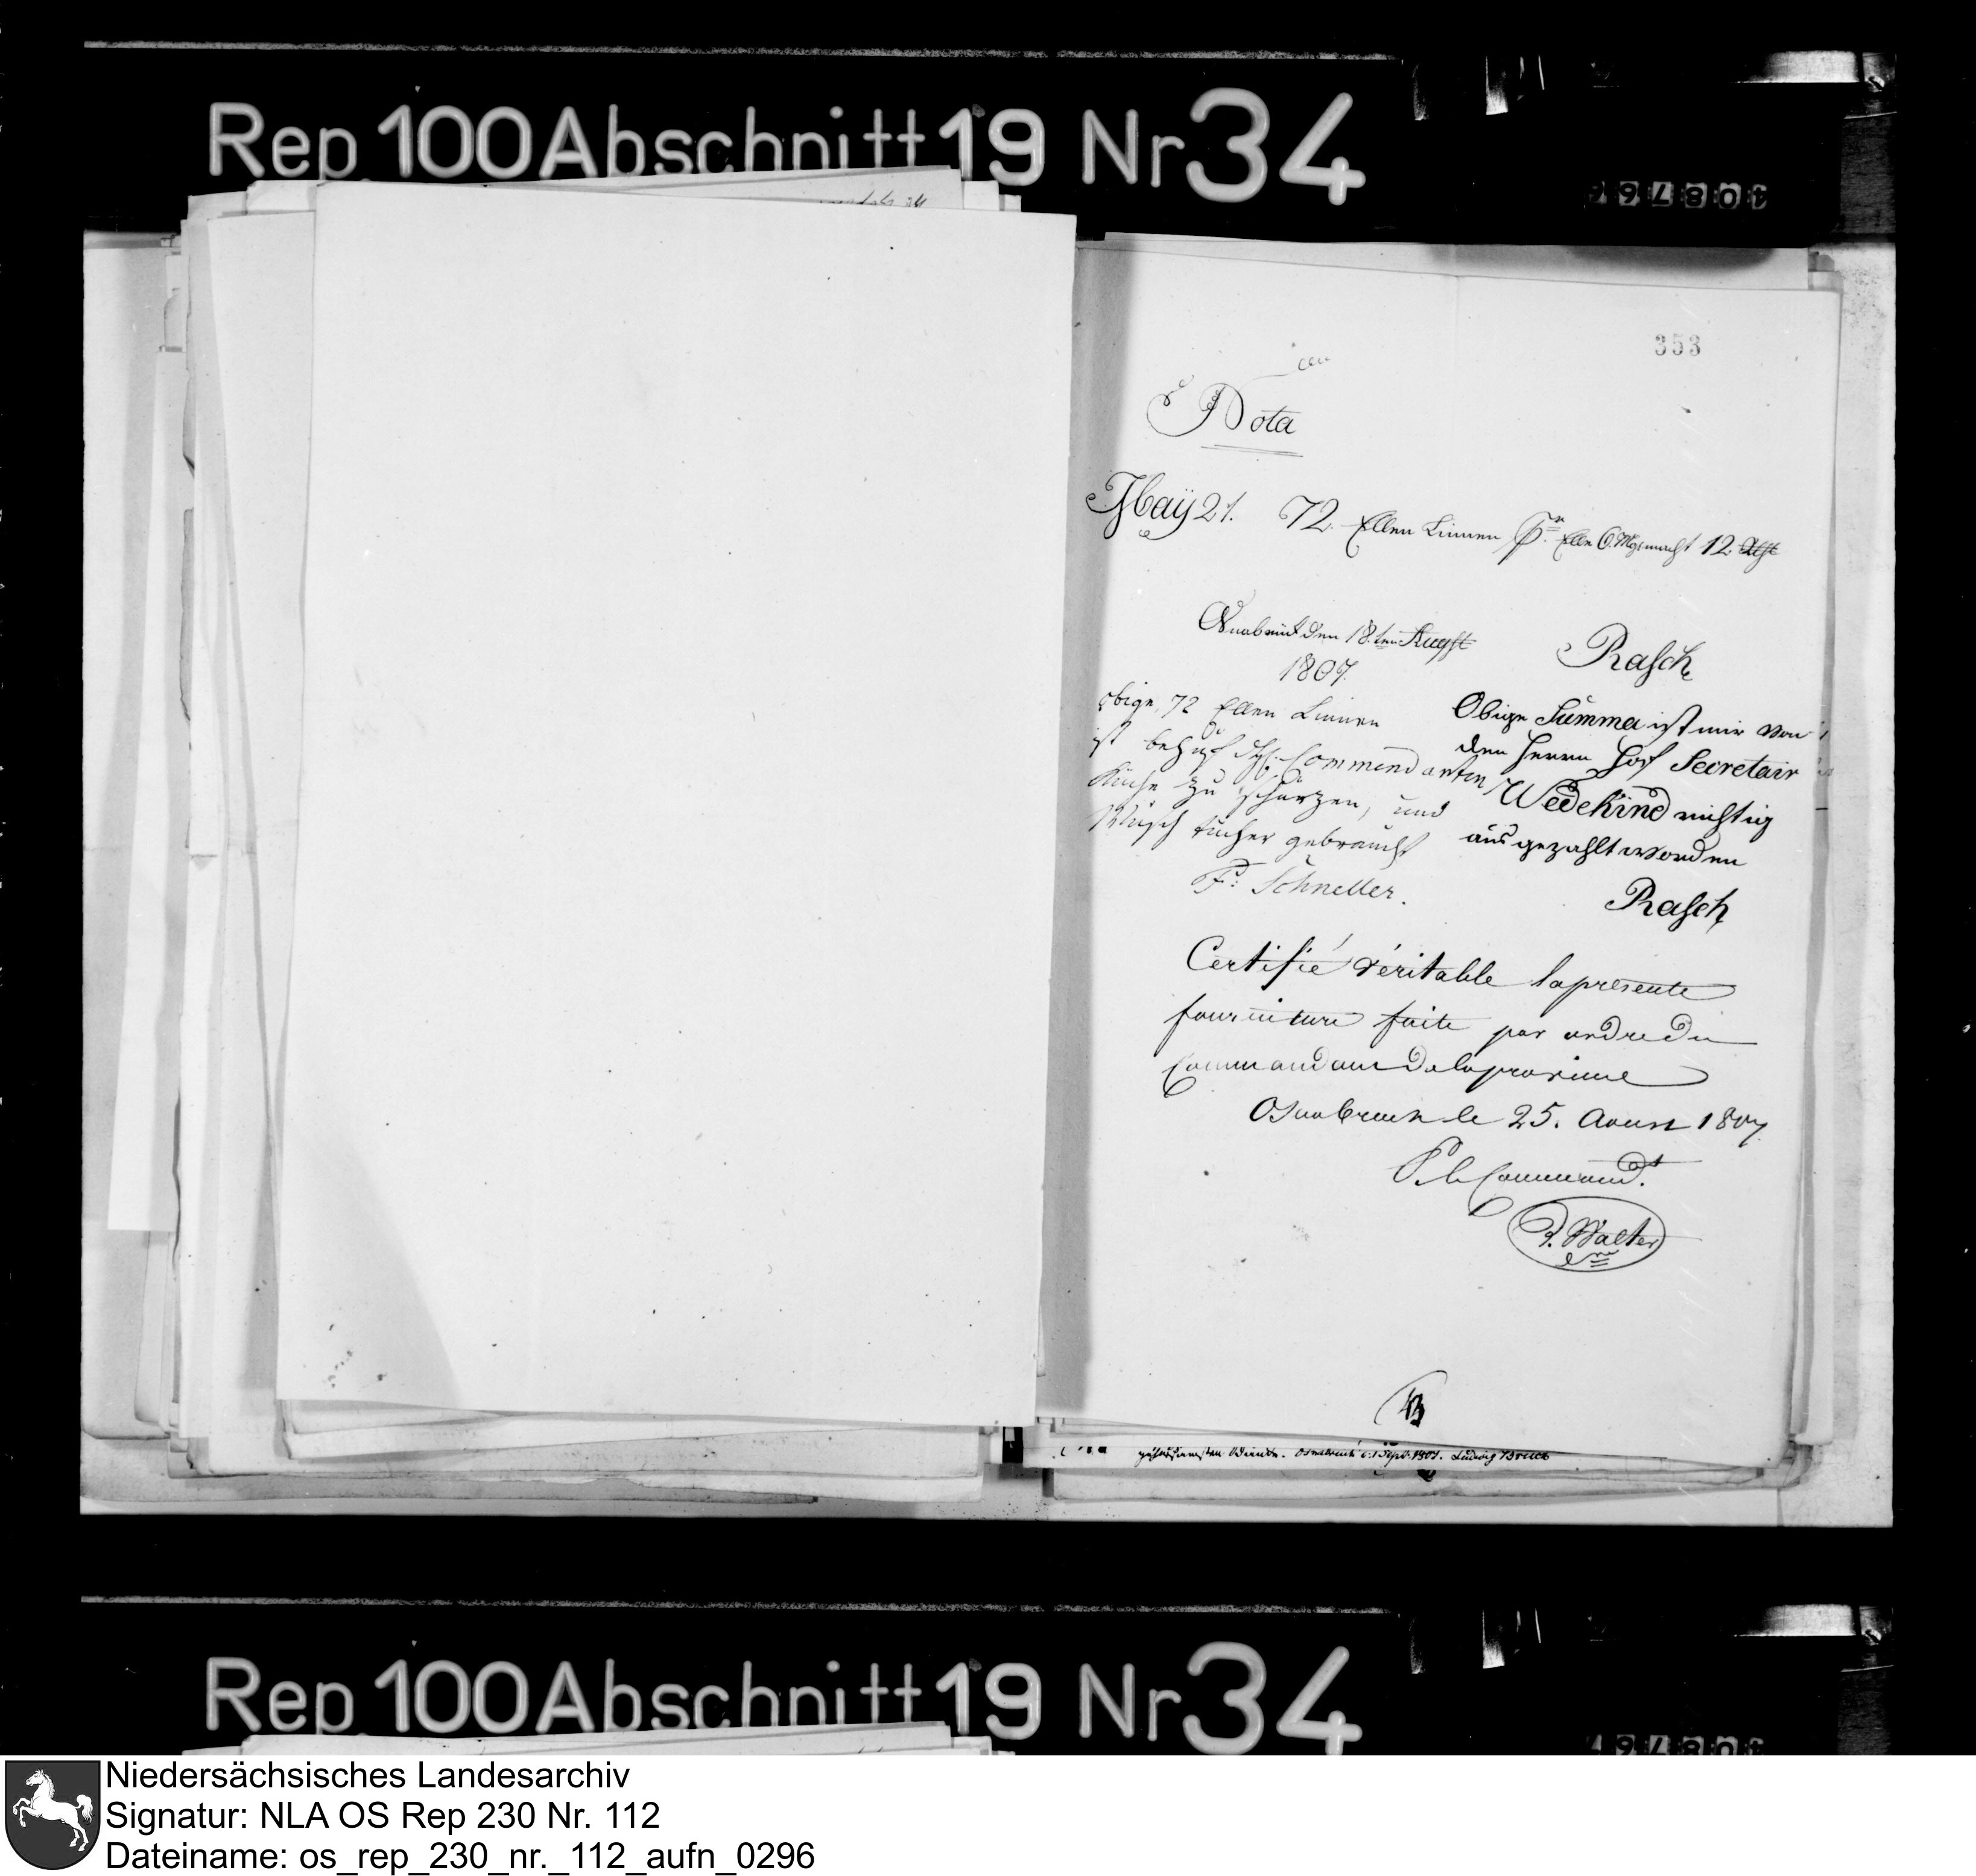 Rep. 100 Abschnitt 19 Nr 34
108766
353
Nota
Maÿ 21. 72. Ellen Linnen Pr. Elle 6 Mg. macht 12 Rthl
Osnabrück den 18.ten Augst
1807.
Rasch
obige 72 Ellen Linnen
ist behuf des Commendanten
Küche zu schürzen, und
Wasch tücher gebraucht
F: Schneller.
Obige Summa ist mir von
den Herrn Hof Secretair
Wedekind richtig
ausgezahlt worden
Rasch
Certifié véritable la presente
fourniture faite par ordre du
Commandant de la province
Osnabruck le 25. Aoust 1807.
P. le Command.t
P. Walter
Osnabrück d. 1 Sept. 1807. Ludwig
Rep. 100 Abschnitt 19 Nr 34
108767
Niedersächsisches Landesarchiv
Signatur: NLA OS Rep 230 Nr. 112
Dateiname: os_rep_230_nr._112_aufn_0296